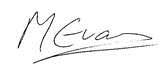 M Evans